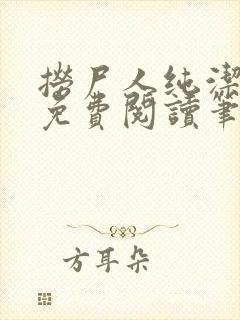 撈尸人純潔
免費閱讀筆
方耳朵